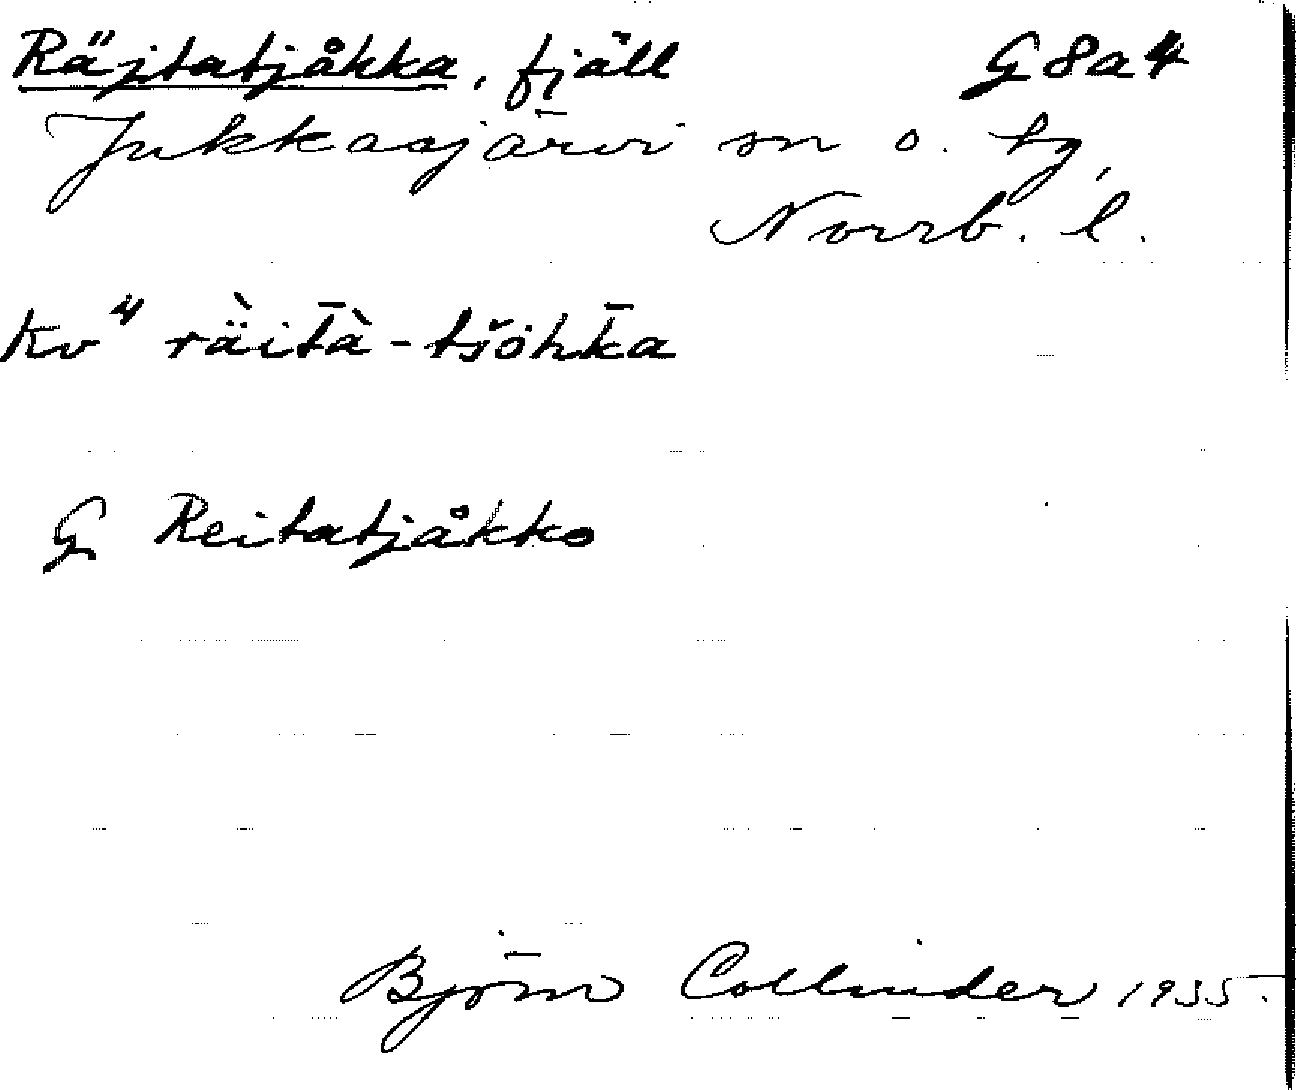 Räjtatjåkka, fjäll G8a4
Jukkasjärvi sn o. tg,
Norrb. l.
Kv" räità̄-tšŏhk̄a
G Reitatjåkko
Björn Collinder 1935.